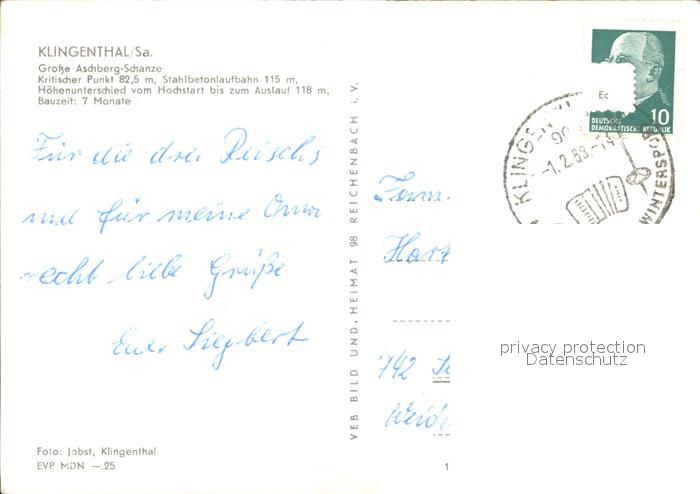 KLINGENTHAL/Sa.
Große Aschberg-Schanze
Kritischer Punkt 82,5 m, Stahlbetonlaufbahn 115 m,
Höhenunterschied vom Hochstart bis zum Auslauf 118 m,
Bauzeit: 7 Monate
Für die drei
und für meine Oma
recht liebe Grüße
Euer Siegbert
Foto: Jobst, Klingenthal
EVP MDN —.25
VEB BILD UND HEIMAT 98 REICHENBACH i. V.
Ec
10
DEUTSCHE
DEMOKRATISCHE REPUBLIK
KLINGEN
WINTERSPOR
Fam.
Hart
742
privacy protection
Datenschutz
1